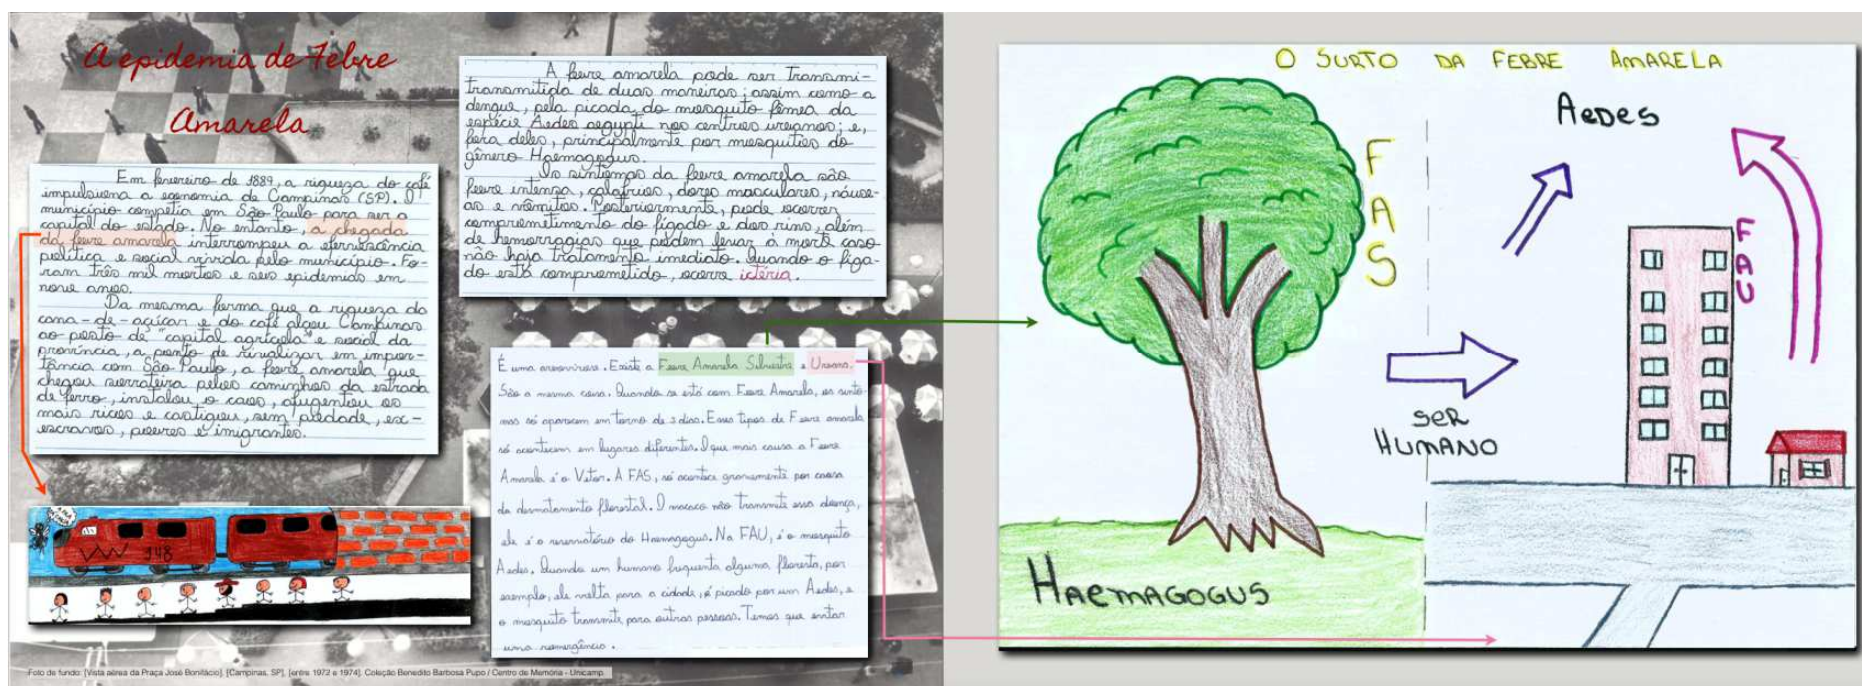 A epidemia de Febre
Amarela
Em fevereiro de 1889, a riqueza do café
impulsiona a economia de Campinas (SP). O
município competia em São Paulo para ser a
capital do estado. No entanto, a chegada
da febre amarela interrompeu a efervescência
política e social vivida pelo município. Fo-
ram três mil mortos e seis epidemias em
nove anos.
Da mesma forma que a riqueza da
cana-de-açúcar e do café alçou Campinas
ao posto de "capital agrícola" e social da
província, a ponto de rivalizar em impor-
tância com São Paulo, a febre amarela que
chegou sorrateira pelos caminhos da estrada
de ferro, instalou o caos, afugentou os
mais ricos e castigou, sem piedade, ex-
escravos, pobres e imigrantes.
A febre amarela pode ser transmi-
transmitida de duas maneiras; assim como a
dengue, pela picada do mosquito fêmea da
espécie Aedes aegypti nos centros urbanos; e,
fora deles, principalmente por mosquitos do
gênero Haemagogus.
Os sintomas da febre amarela são
febre intensa, calafrios, dores musculares, náuse-
as e vômitos. Posteriormente, pode ocorrer
comprometimento do fígado e dos rins, além
de hemorragias que podem levar à morte caso
não haja tratamento imediato. Quando o fíga-
do está comprometido, ocorre icterícia.
É uma arbovirose. Existe a Febre Amarela Silvestre e Urbana.
São a mesma coisa. Quando se está com Febre Amarela, os sinto-
mas só aparecem em torno de 3 dias. Esses tipos de Febre amarela
só acontecem em lugares diferentes. O que mais causa a Febre
Amarela é o Vetor. A FAS, só acontece gravemente por causa
do desmatamento florestal. O macaco não transmite essa doença,
ele é o reservatório do Haemagogus. Na FAU, é o mosquito
Aedes. Quando um humano frequenta alguma floresta, por
exemplo, ele volta para a cidade, é picado por um Aedes, e
o mosquito transmite para outras pessoas. Temos que evitar
uma reemergência.
148
Foto de fundo: [Vista aérea da Praça José Bonifácio]. [Campinas, SP], [entre 1972 e 1974]. Coleção Benedito Barbosa Pupo / Centro de Memória - Unicamp.
O SURTO DA FEBRE AMARELA
AEDES
FAS
FAU
SER
HUMANO
HAEMAGOGUS